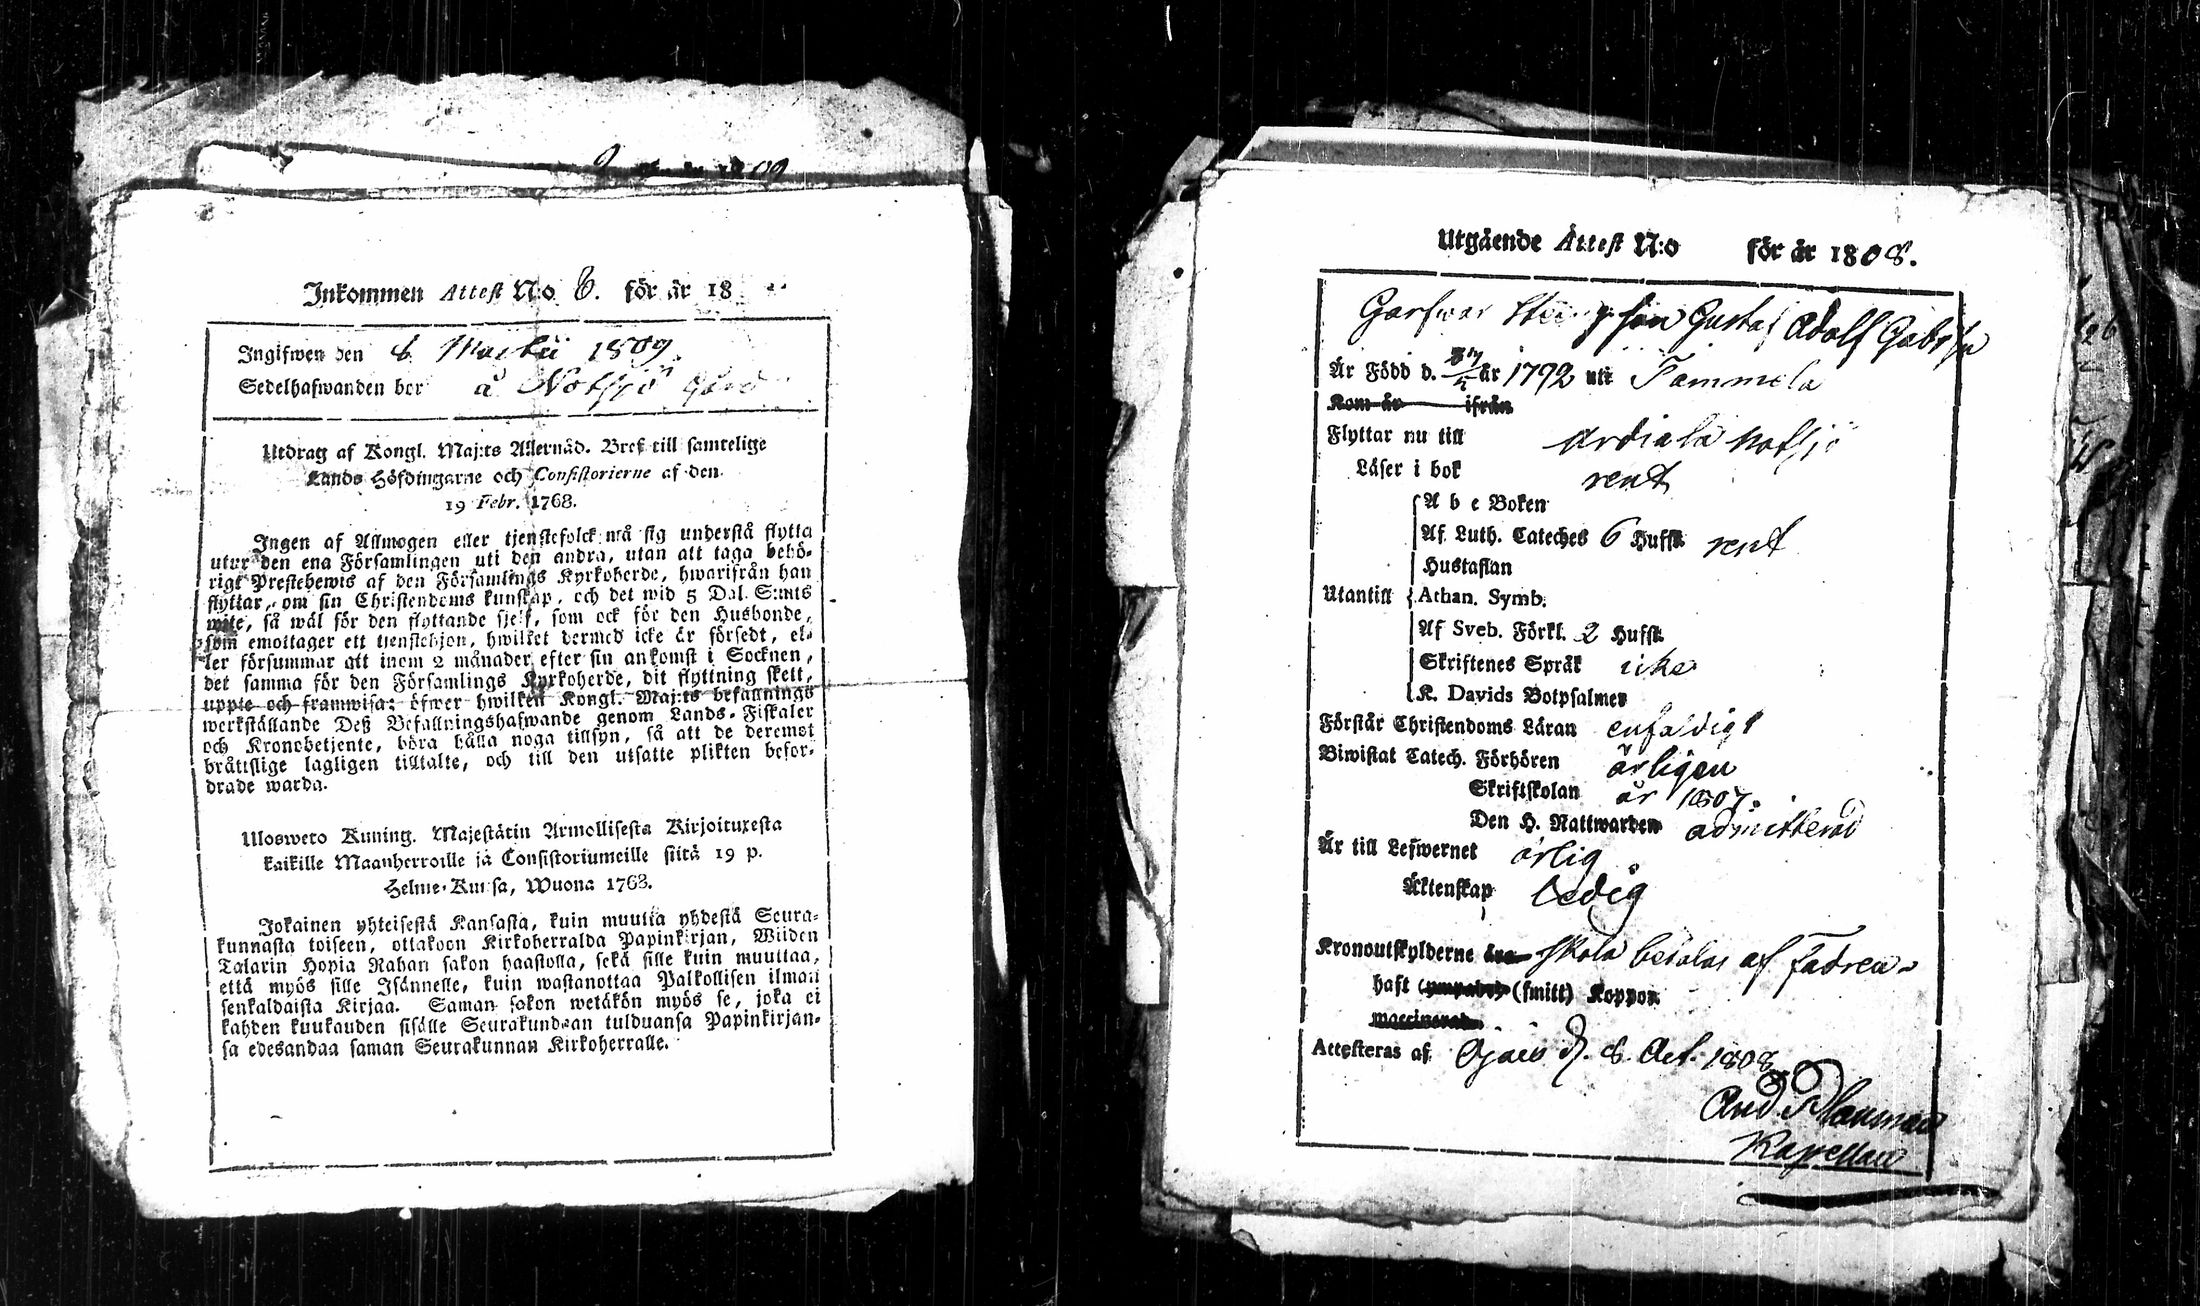 Inkommen Attest N:o 6. för år 18
Ingifwen den 6 Martii 1809.
Sedelhafwanden bor å Notsjö Gård
Utdrag af Kongl. Maj:ts Allernåd. Bref till samtelige
Lands Höfdingarne och Consistorierne af den
19 Febr. 1768.
Ingen af Allmogen eller tjenstefolck må sig understå flytta
utur den ena Församlingen uti den andra, utan att taga behö-
rigt Prestebewis af den Församlings Kyrkoherde, hwarifrån han
flyttar, om sin Christendoms kunskap, och det wid 5 Dal. S:mts
wite, så wäl för den flyttande sjelf, som ock för den Husbonde,
som emottager ett tjenstehjon, hwilket dermed icke är försedt, el-
ler försummar att inom 2 månader efter sin ankomst i Socknen,
det samma för den Församlings Kyrkoherde, dit flyttning skett,
uppte och framwisa; öfwer hwilken Kongl. Maj:ts befallnings
werkställande Deß Befallningshafwande genom Lands-Fiskaler
och Kronobetjente, böra hålla noga tillsyn, så att de deremot
bråttslige lagligen tilltalte, och till den utsatte plikten befor-
drade warda.
Ulosweto Kuning. Majestätin Armollisesta Kirjoituxesta
kaikille Maanherroille ja Consistoriumeille siitä 19 p.
Helme-Kuusa, Wuona 1768.
Jokainen yhteisestä Kansasta, kuin muutta yhdestä Seura-
kunnasta toiseen, ottakoon Kirkoherralda Papinkirjan, Wiiden
Talarin Hopia Rahan sakon haastolla, sekä sille kuin muuttaa,
että myös sille Isännelle, kuin wastanottaa Palkollisen ilman
senkaldaista Kirjaa. Saman sakon wetäkön myös se, joka ei
kahden kuukauden sisälle Seurakundaan tulduansa Papinkirjan-
sa edesandaa saman Seurakunnan Kirkoherralle.
Utgående Attest N:o för år 1808.
Garfwar son Gustaf Adolf
Är Född d. 27/5 år 1792 uti Tammela
Kom år ifrån
Flyttar nu till Urdiala Notsjö
Läser i bok rent
A b c Boken
Af Luth. Cateches 6 Hufst. rent
Hustaflan
Utantill Athan. Symb.
Af Sveb. Förkl. 2 Hufst.
Skriftenes Språk icke
K. Davids Botpsalmer
Förstår Christendoms Läran enfaldigt
Biwistat Catech. Förhören årligen
Skriftskolan år 1807.
Den H. Nattwarden admitterad
Är till Lefwernet ärlig
Äktenskap ledig
Kronoutskylderne äro skola betalas af Fadren
haft (ympade) (smitt) Koppor
waccinerad
Attesteras af d. 8 Oct. 1808
And. Planman
Kapellan